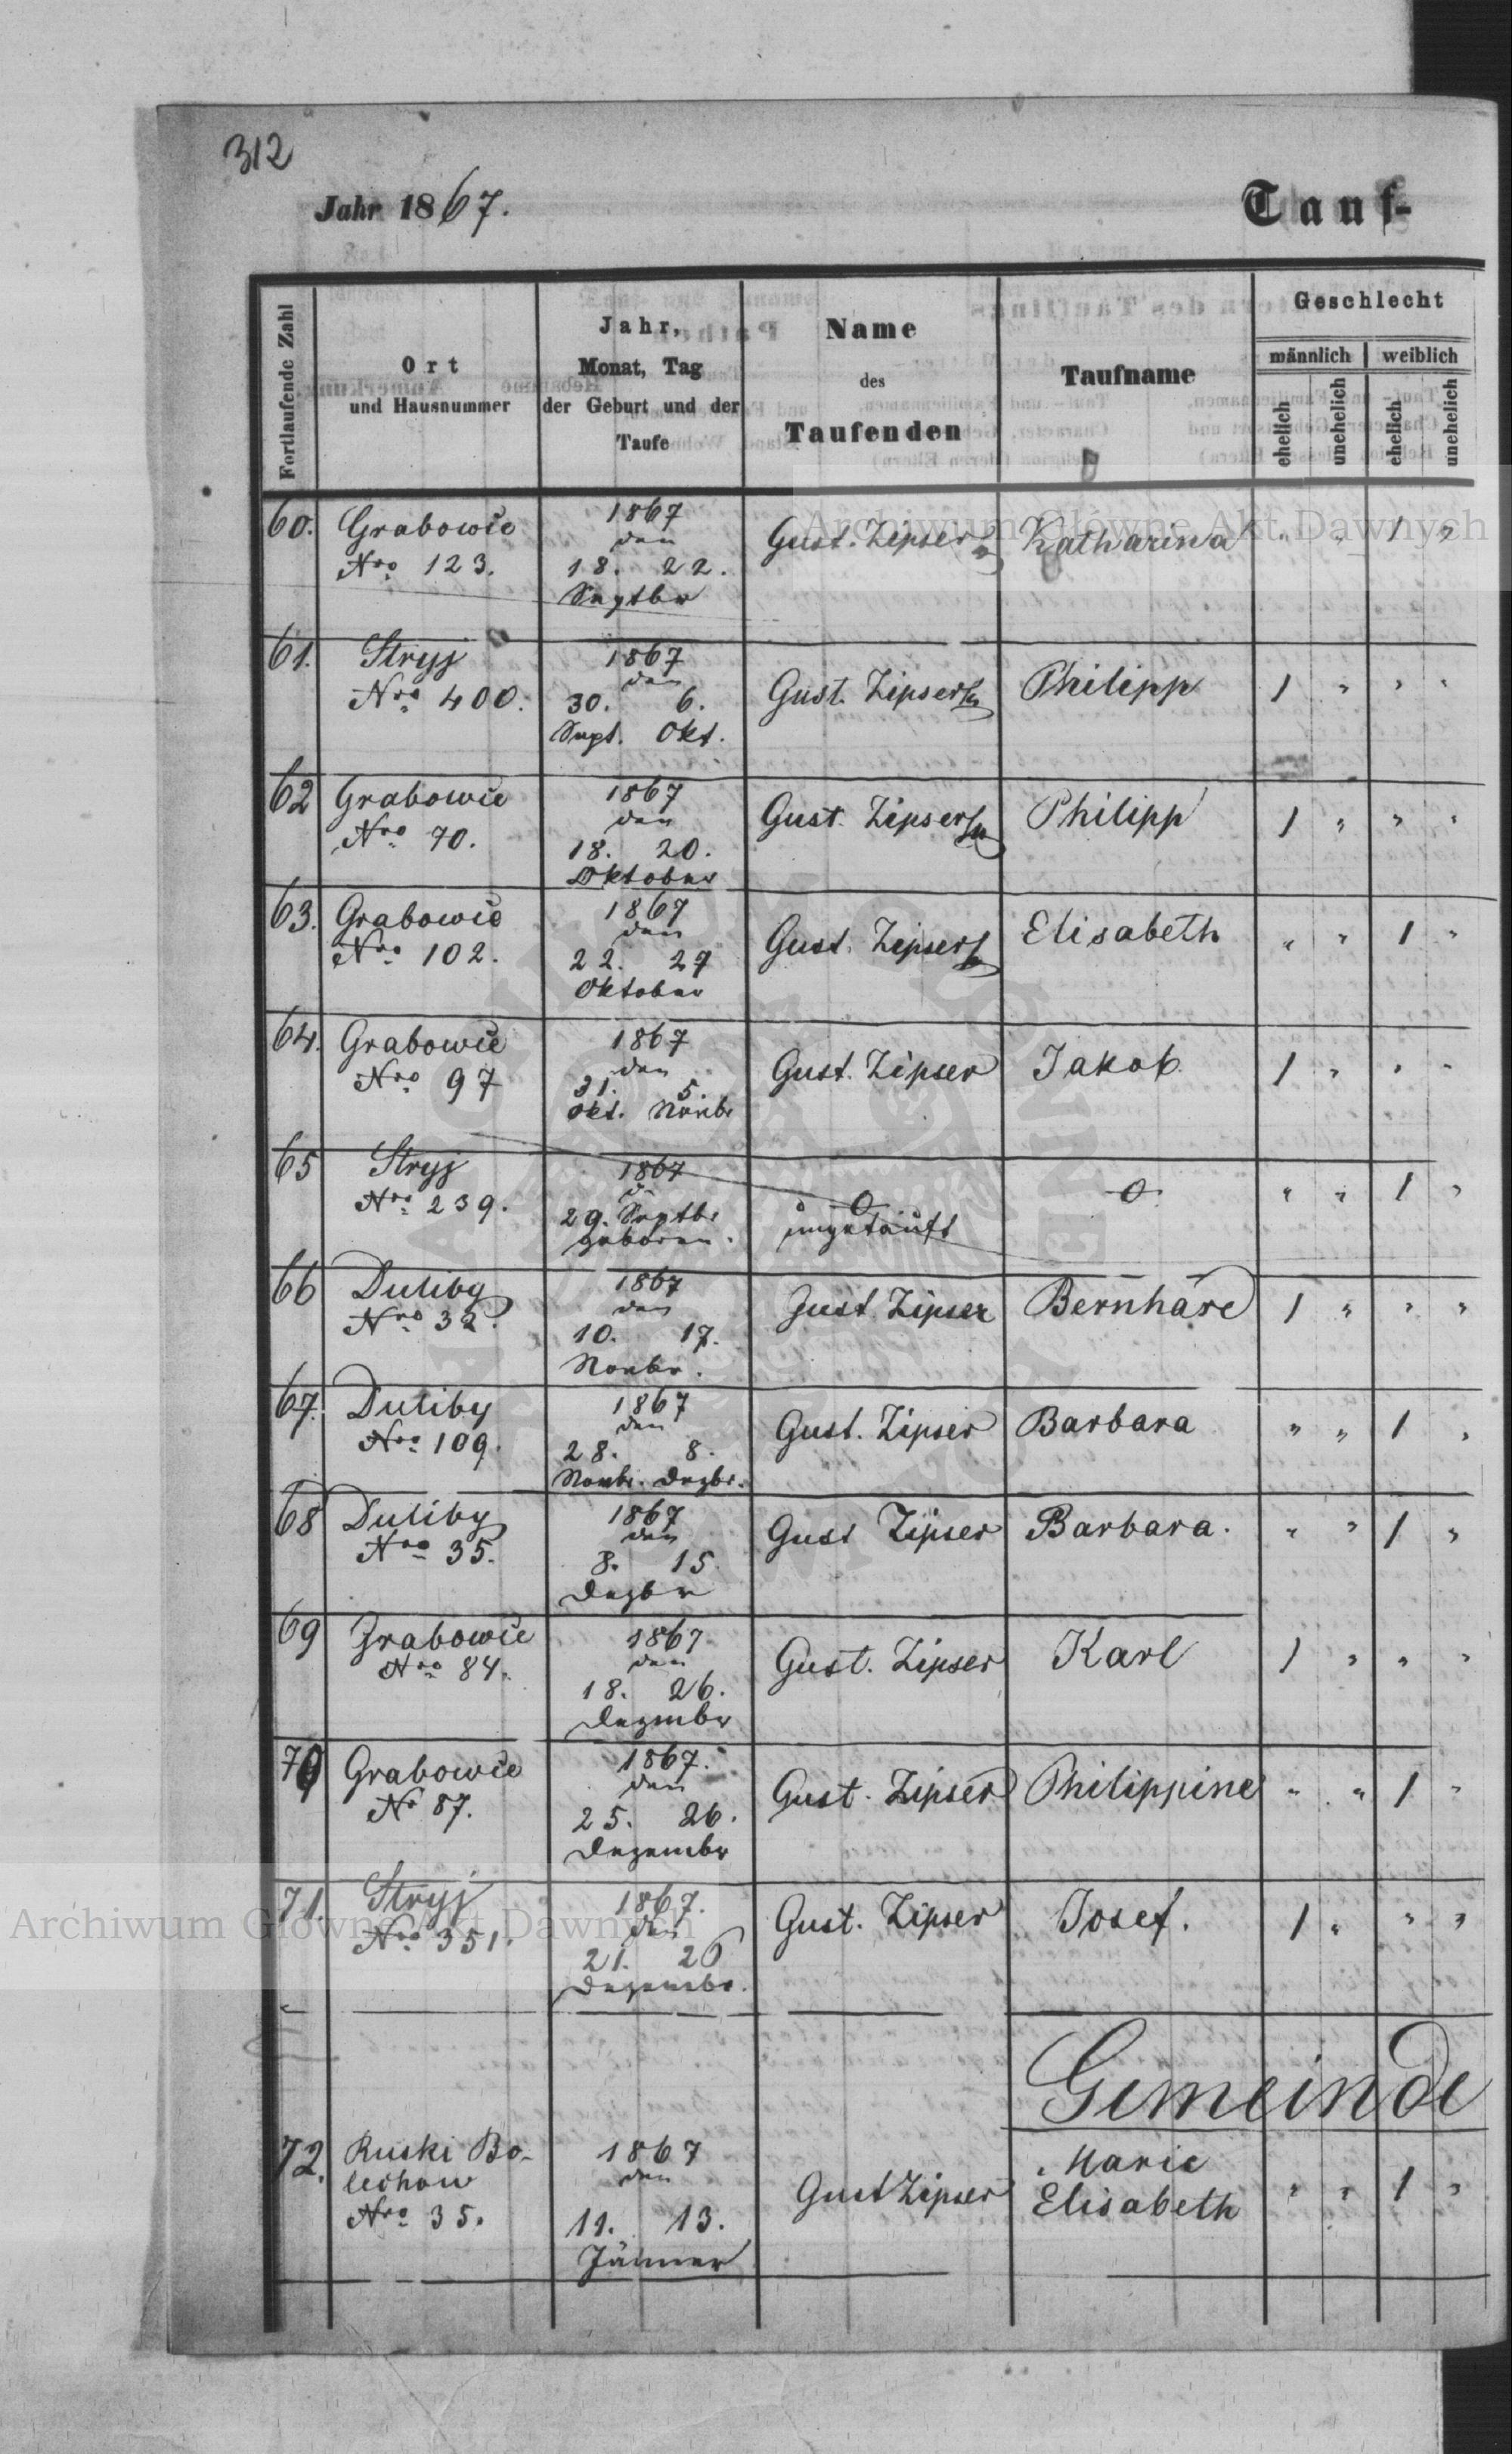 312
Jahr 1867.
Tauf-
Fortlaufende Zahl
Ort
und Hausnummer
Jahr,
Monat, Tag
der Geburt und der
Taufe
Name
des
Taufenden
Taufname
Geschlecht
männlich
weiblich
ehelich
unehelich
ehelich
unehelich
60. Grabowie 1867 Gust. Zipser Katharina " " 1 "
Nro 123. den
18. 22.
Septber
61. Stryj 1867 Gust. Zipser Philipp 1 " " "
Nro 400. den
30. 6.
Sept. Okt.
62 Grabowie 1867 Gust. Zipser Philipp 1 " " "
Nro 70. den
18. 20.
Oktober
63. Grabowie 1867 Gust. Zipser Elisabeth " " 1 "
Nro 102. den
22. 27
Oktober
64. Grabowie 1867 Gust. Zipser Jakob 1 " " "
Nro 97 den
31. 5.
Okt. Novbr
65 Stryj 1867 o o " " 1 "
Nro 239. d.
29. Septbr ungetauft
geboren.
66 Duliby 1867 Gust. Zipser Bernhard 1 " " "
Nro 32. den
10. 17.
Novbr.
67. Duliby 1867 Gust. Zipser Barbara " " 1 "
Nro 109. den
28. 8.
Novbr. Dezbr.
68 Duliby 1867 Gust Zipser Barbara. " " 1 "
Nro 35. den
8. 15.
Dezbr
69 Grabowie 1867 Gust. Zipser Karl 1 " " "
Nro 84. den
18. 26.
Dezember
70 Grabowie 1867. Gust. Zipser Philippine " " 1 "
No 87. den
25. 26.
Dezember
71. Stryj 1867. Gust. Zipser Josef. 1 " " "
Nro 351. den
21. 26
Dezembr.
Gemeinde
72. Ruski Bo- 1867 Gust Zipser Marie " " 1 "
lechow den Elisabeth
Nro 35. 11. 13.
Jänner
Archiwum Główne Akt Dawnych
Archiwum Główne Akt Dawnych